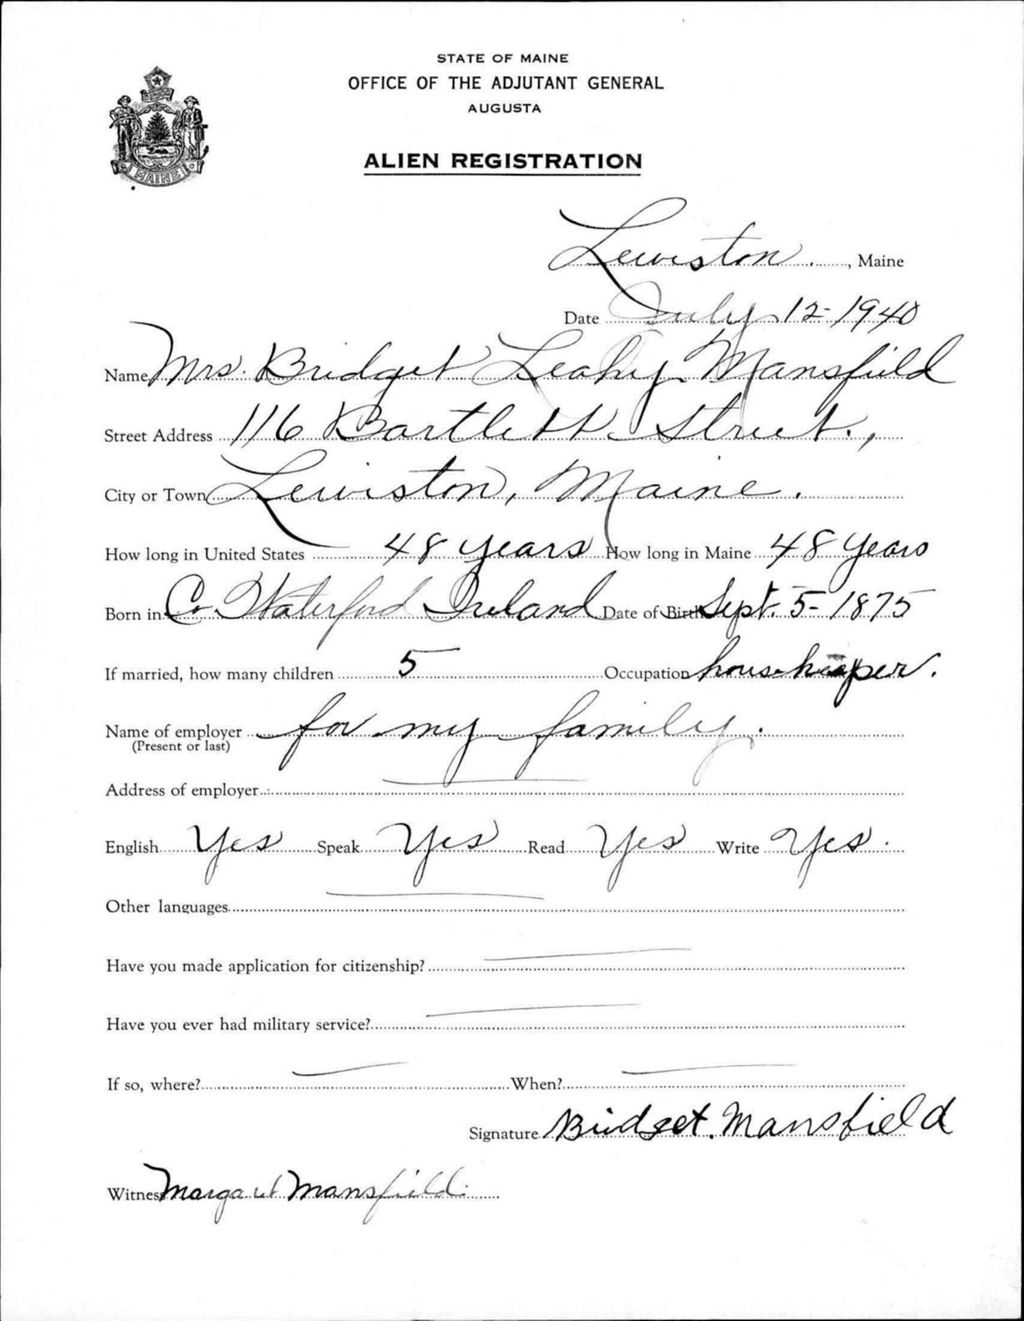 STATE OF MAINE
OFFICE OF THE ADJUTANT GENERAL
AUGUSTA
ALIEN REGISTRATION
MAINE
Lewiston, Maine
Date July 12-1940
Name Mrs. Bridget Leahy Mansfield
Street Address 116 Bartlett Street.,
City or Town Lewiston, Maine.
How long in United States 48 years How long in Maine 48 years
Born in Co. Waterford Ireland Date of Birth Sept. 5-1875
If married, how many children 5 Occupation housekeeper.
Name of employer for my family.
(Present or last)
Address of employer —
English Yes Speak Yes Read Yes Write Yes.
Other languages —
Have you made application for citizenship? —
Have you ever had military service? —
If so, where? — When? —
Signature Bridget. Mansfield
Witness Margaret Mansfield.